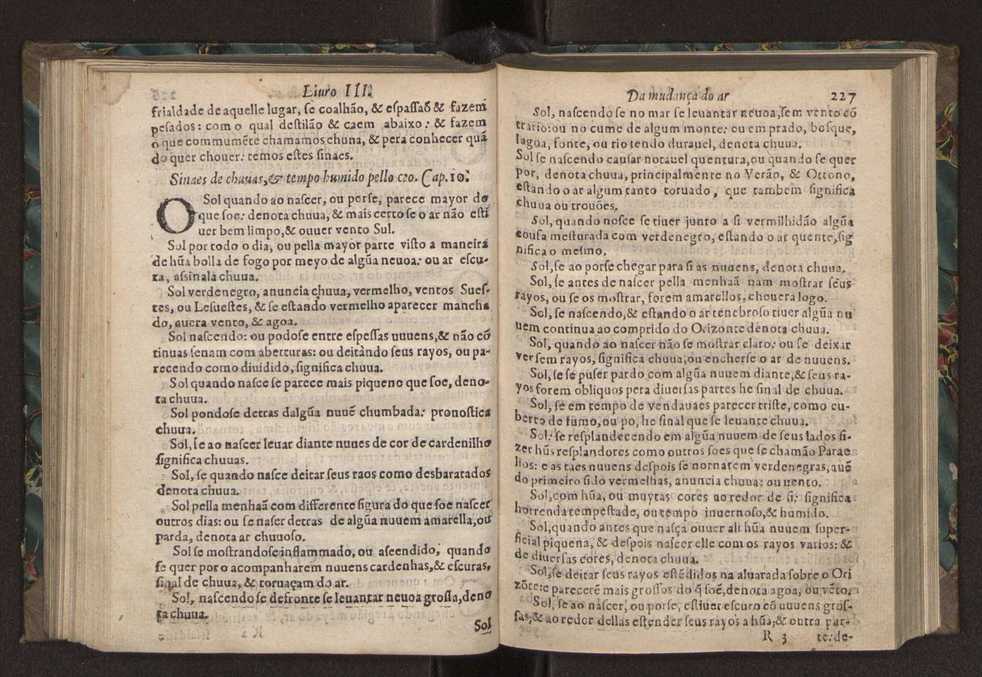 Liuro III.
frialdade de aquelle lugar, se coalhão, & espassaõ & fazem
pesados: com o qual destilão & caem abaixo: & fazem
o que commumẽte chamamos chuua, & pera conhecer quã
do quer chouer: temos estes sinaes.
Sinaes de chuuas, & tempo humido pello ceo. Cap. 10.
O Sol quando ao nascer, ou porse, parece mayor do
que soe: denota chuua, & mais certo se o ar não esti
uer bem limpo, & ouuer vento Sul.
Sol por todo o dia, ou pella mayor parte visto a maneira
de hũa bolla de fogo por meyo de algũa neuoa: ou ar escu-
ra, assinala chuua.
Sol verdenegro, anuncia chuua, vermelho, ventos Sues-
tes, ou Lesuestes, & se estando vermelho aparecer mancha
do, auera vento, & agoa.
Sol nascendo: ou podose entre espessas uuuens, & não cõ
tinuas senam com aberturas: ou deitãdo seus rayos, ou pa-
recendo como diuidido, significa chuua.
Sol quando nasce se parece mais piqueno que soe, deno-
ta chuua.
Sol pondose detras dalgũa nuuẽ chumbada: pronostica
chuua.
Sol, se ao nascer leuar diante nuues de cor de cardenilho
significa chuuas.
Sol, se quando nasce deitar seus raos como desbaratados
denota chuua.
Sol pella menhaã com differente figura do que soe nascer
outros dias: ou se naser detras de algũa nuuem amarella, ou
parda, denota ar chuuoso.
Sol se mostrandose inflammado, ou ascendido, quando
se quer por o acompanharem nuuens cardenhas, & escuras,
sinal de chuua, & toruaçam do ar.
Sol, nascendo se defronte se leuantar neuoa grossa, deno
ta chuua.
Sol
Da mudança do ar 227
Sol, nascendo se no mar se leuantar neuoa, sem vento cõ
trario: ou no cume de algum monte: ou em prado, bosque,
lagoa, fonte, ou rio tendo durauel, denota chuua.
Sol se nascendo causar notauel quentura, ou quando se quer
por, denota chuua, principalmente no Verão, & Ottono,
estando o ar algum tanto toruado, que tambem significa
chuua ou trouões.
Sol, quando nosce se tiuer junto a si vermilhidão algũa
cousa mesturada com verdenegro, estando o ar quente, sig
nifica o mesmo.
Sol, se ao porse chegar para si as nuuens, denota chuua.
Sol, se antes de nascer pella menhaã nam mostrar seus
rayos, ou se os mostrar, forem amarellos, chouera logo.
Sol, se nascendo, & estando o ar tenebroso tiuer algũa nu
uem continua ao comprido do Orizonte denota chuua.
Sol, quando ao nascer não se mostrar claro: ou se deixar
ver sem rayos, significa chuua, ou encherse o ar de nuuens.
Sol, se se puser pardo com algũa nuuem diante, & seus ra-
yos forem obliquos pera diuersas partes he sinal de chuua.
Sol, se em tempo de vendauaes parecer triste, como cu-
berto de fumo, ou po, he final que se leuante chuua.
Sol: se resplandecendo em algũa nuuem de seus lados fi-
zer hũs resplandores como outros soes que se chamão Parae
lios: e as taes nuuens despois se nornarem verdenegras, auẽ
do primeiro sido vermelhas, anuncia chuua: ou uento.
Sol, com hũa, ou muytas cores ao redor de si: significa
horrenda tempestade, ou tempo inuernoso, & humido.
Sol, quando antes que nasça ouuer ali hũa nuuem super-
ficial piquena, & despois nascer elle com os rayos varios: &
de diuersas cores, denota chuua.
Sol, se deitar seus rayos estẽdidos na aluarada sobre o Ori
zõte: e parecerẽ mais grossos do q̃ soẽ, denota agoa, ou vẽto.
Sol, se ao nascer, ou porse, estiuer escuro cõ uuuens gros-
sas, & ao redor dellas estender seus rayos a hũa, & outra par-
R 3 te: de-